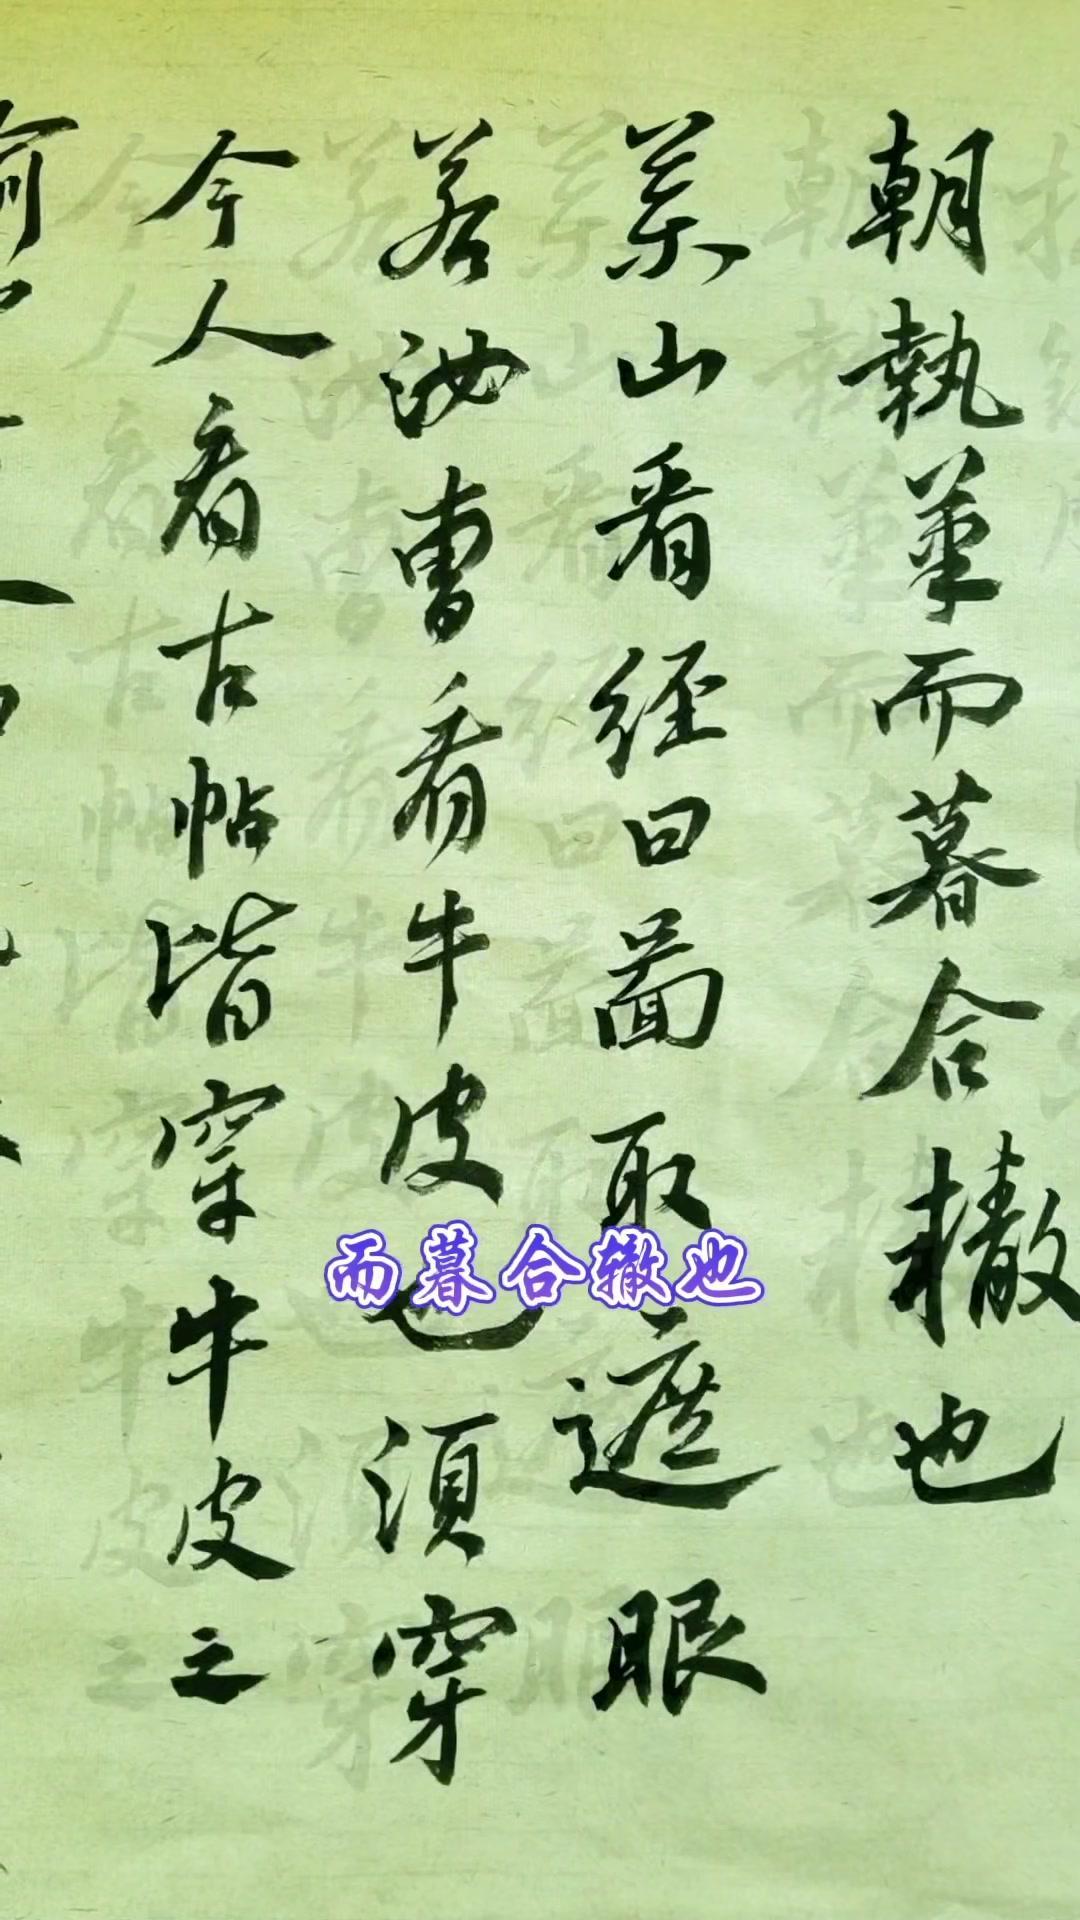 朝執筆而暮合轍也
藥山看經曰啚取遮眼
若汝曹看牛皮也須穿
今人看古帖皆穿牛皮之
而暮合辙也